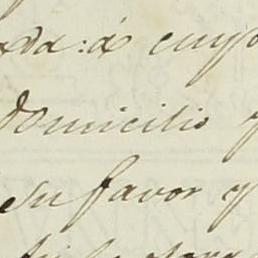 da: á cuyo
domicilio y
su favor y